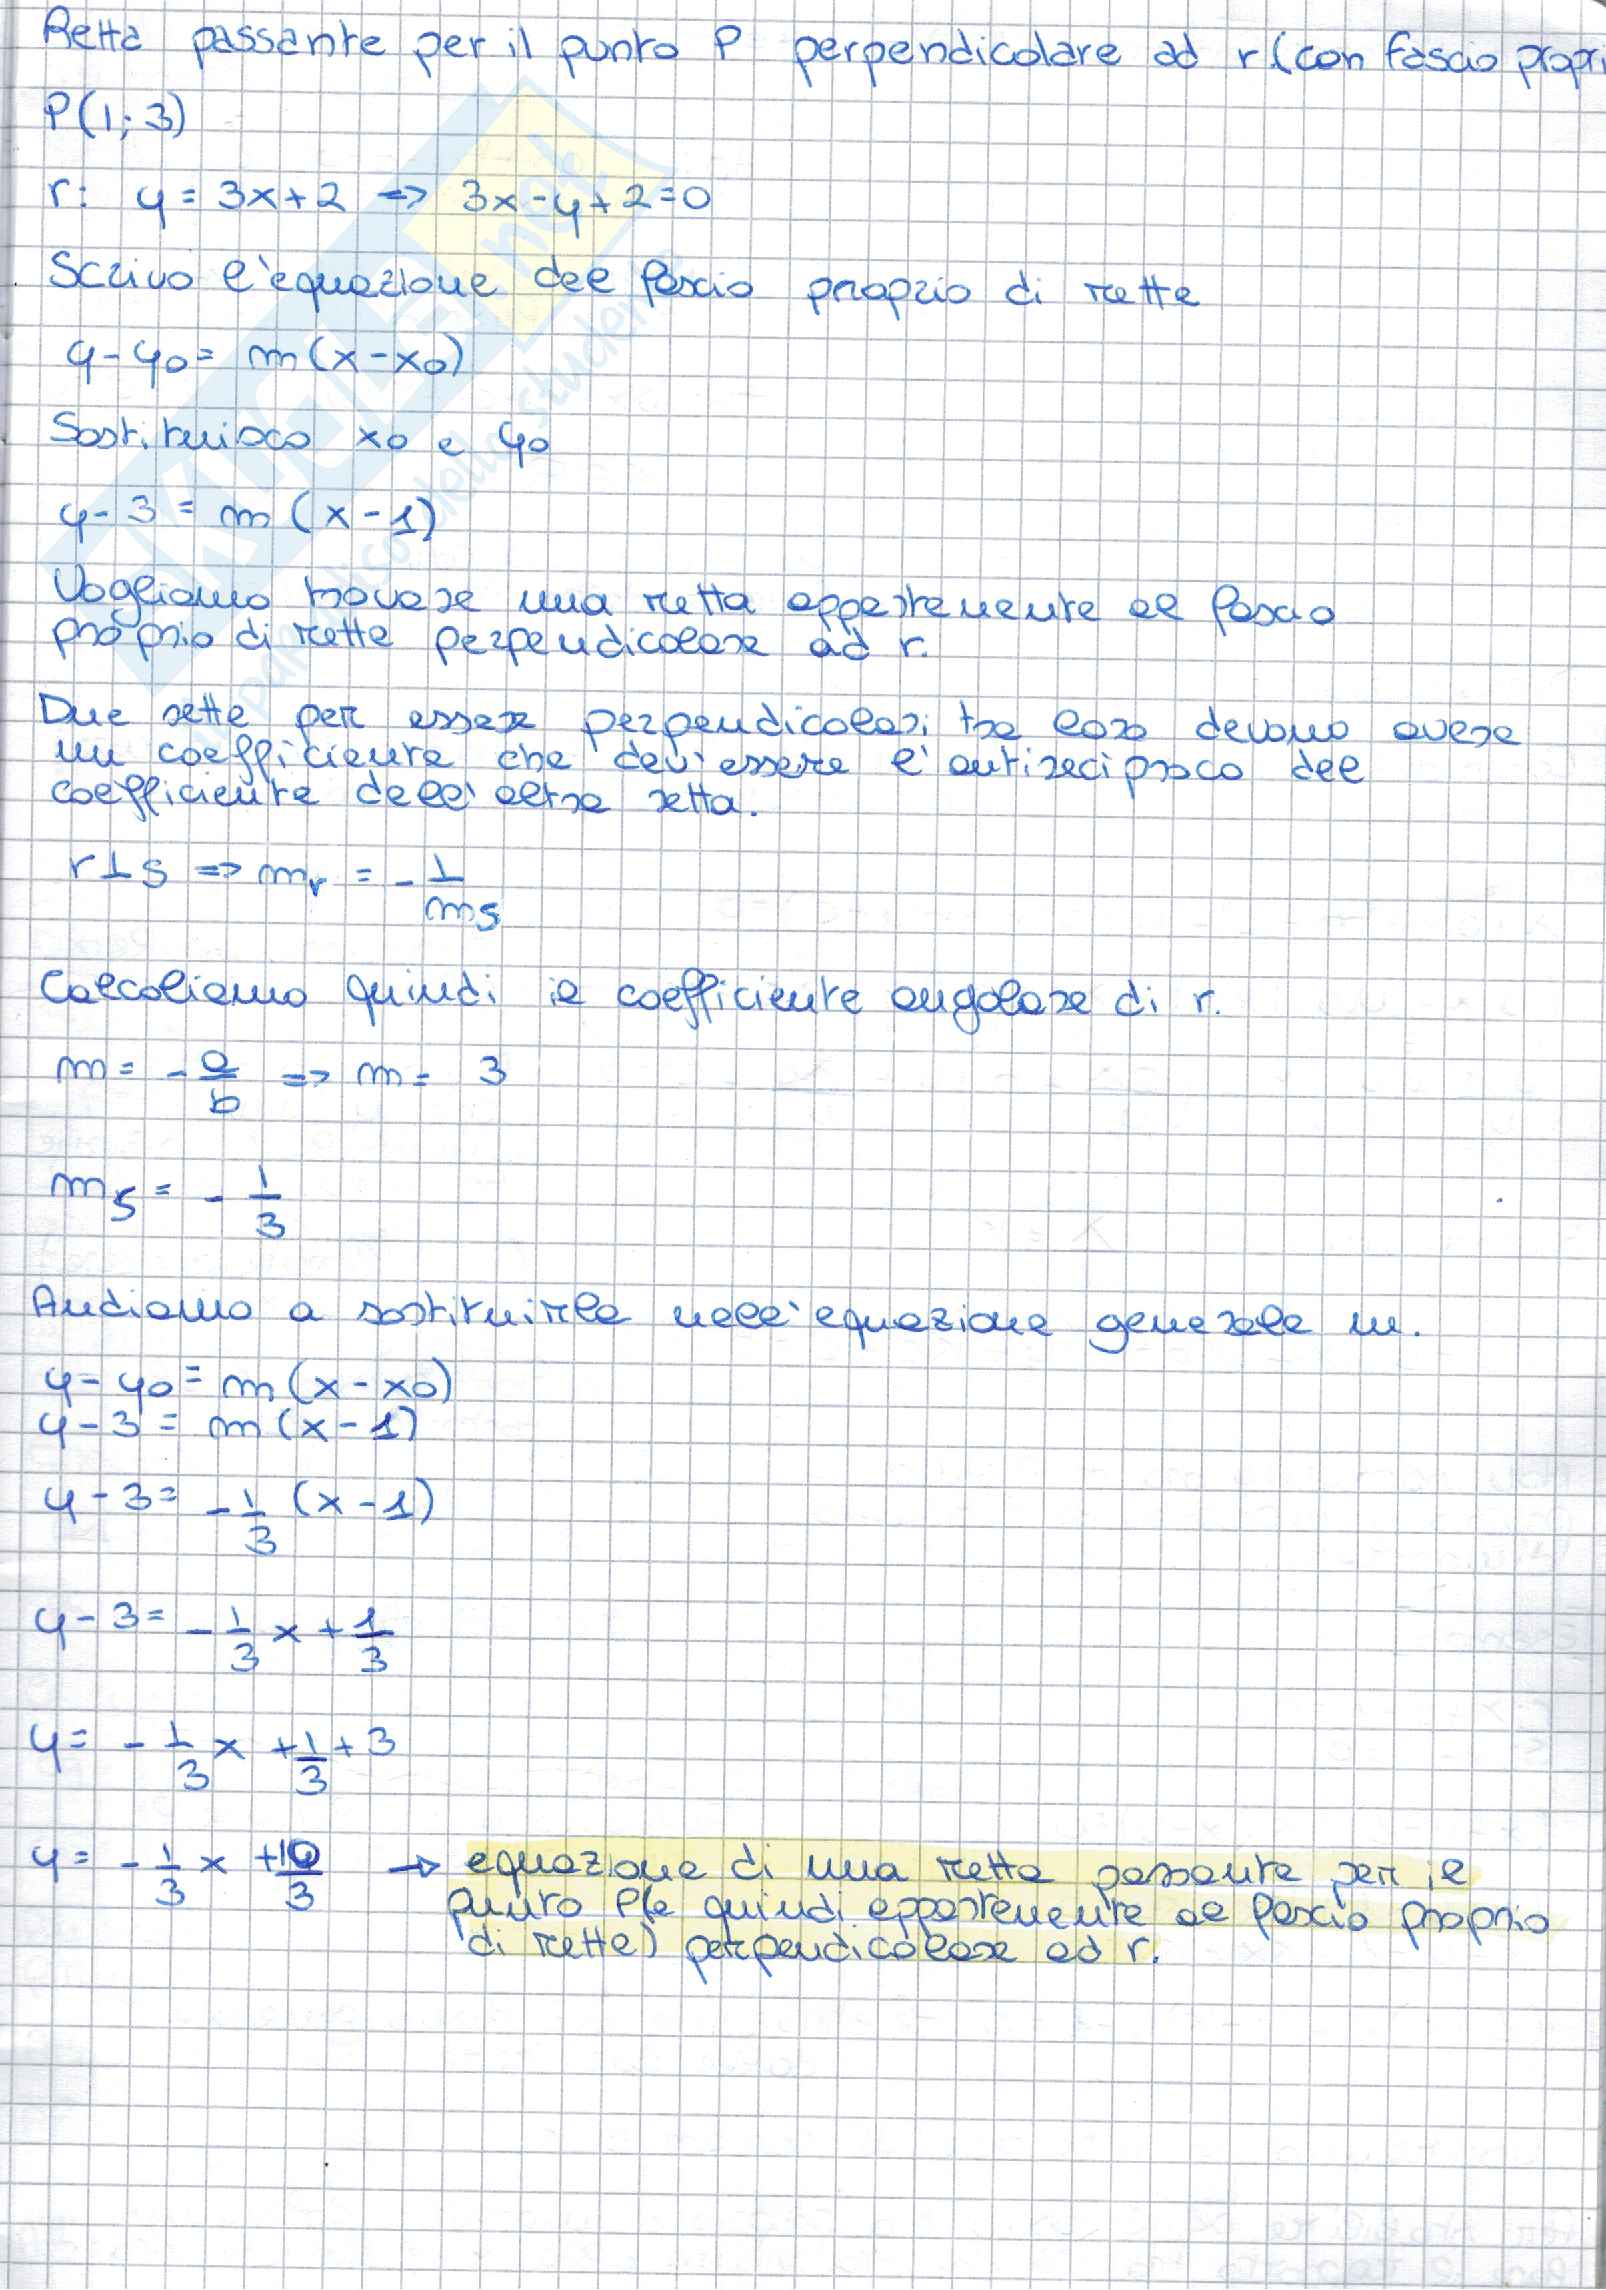 Retta passante per il punto P perpendicolare ad r (con fascio propri
P(1; 3)
r: y = 3x+2 => 3x-y+2=0
Scrivo l'equazione del fascio proprio di rette
y-y0 = m(x-x0)
Sostituisco x0 e y0
y-3 = m (x-1)
Vogliamo trovare una retta appartenente al fascio
proprio di rette perpendicolare ad r.
Due rette per essere perpendicolari tra loro devono avere
un coefficiente che dev'essere l'antireciproco del
coefficiente dell'altra retta.
r⊥s => mr = -1/ms
Calcoliamo quindi il coefficiente angolare di r.
m = -a/b => m = 3
ms = -1/3
Andiamo a sostituirle nell'equazione generale m.
y-y0 = m(x-x0)
y-3 = m(x-1)
y-3 = -1/3 (x-1)
y-3 = -1/3 x + 1/3
y = -1/3 x + 1/3 + 3
y = -1/3 x + 10/3 → equazione di una retta passante per il
punto P(e quindi appartenente al fascio proprio
di rette) perpendicolare ad r.